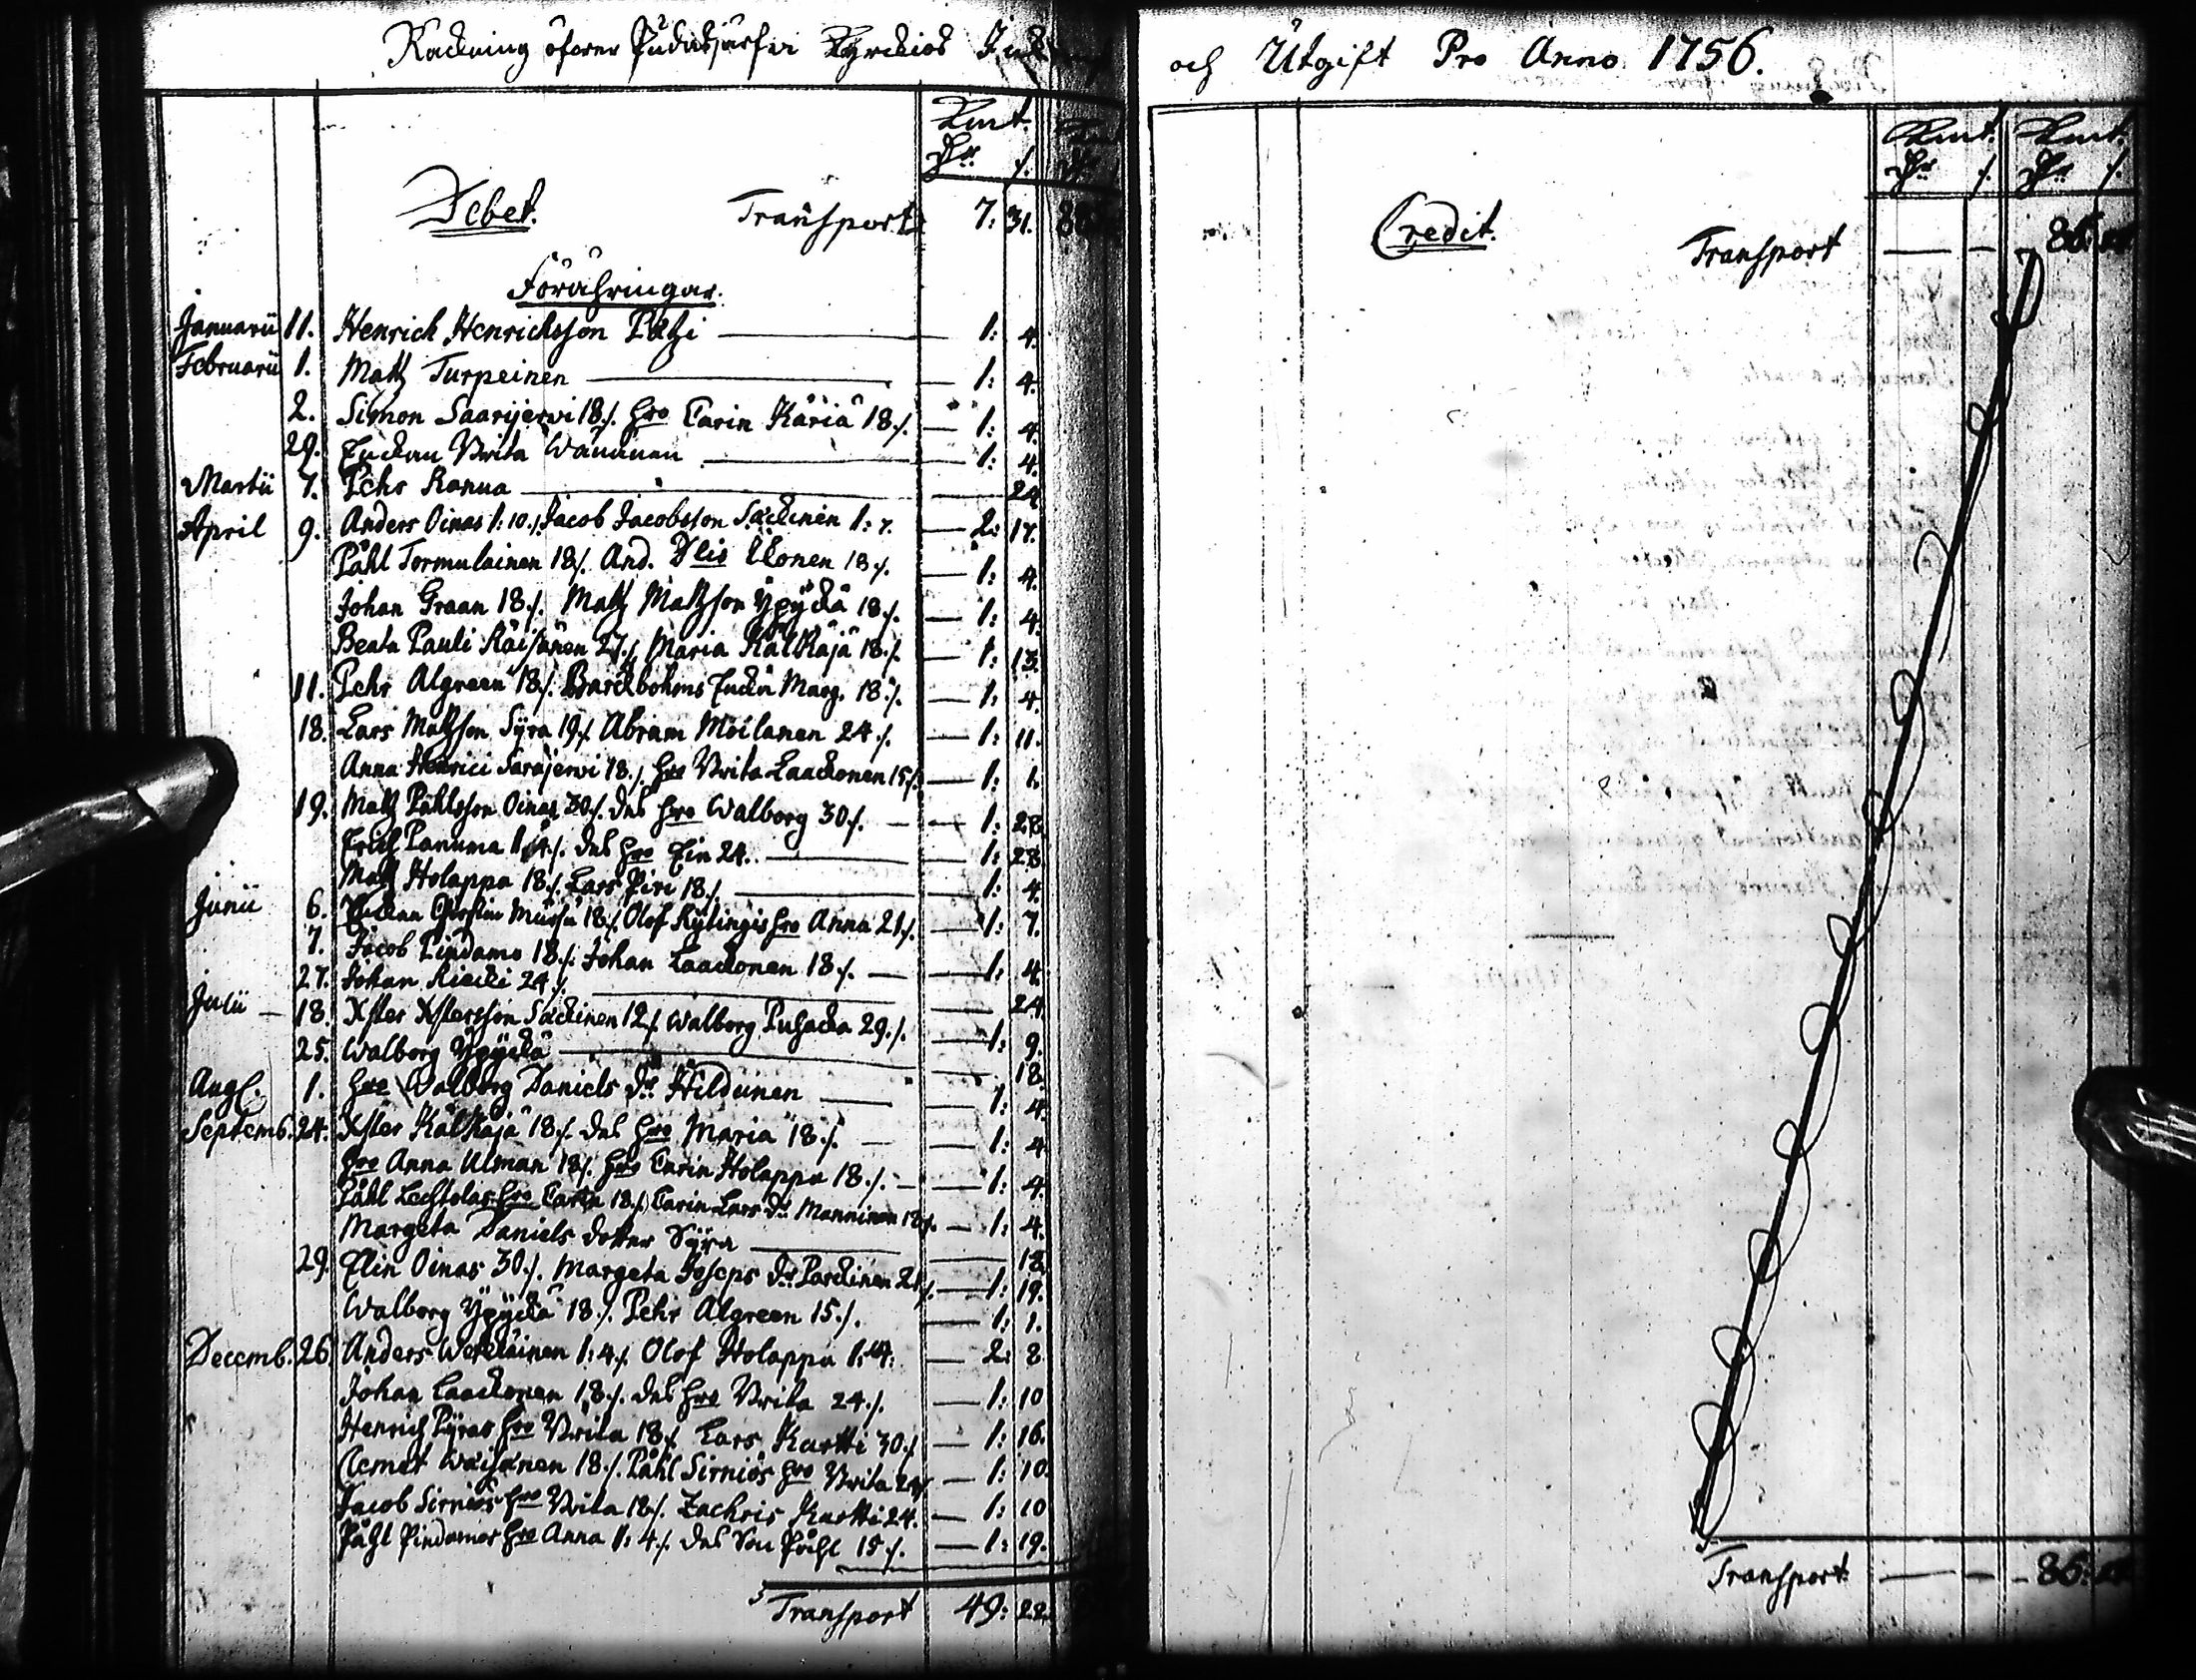 Räckning öfwer Pudasjärfwi Kyrckios
och Utgift Pro Anno 1756.
Kmt.
Dr. /.
Debet. Transport 7: 31.
Förähringar.
Januarii 11. Henrich Henrichsson Pätzi — 1: 4.
Februarii 1. Matz Turpeinen — 1: 4.
2. Simon Saarijerwi 18/. Hro Carin Käriä 18/. — 1: 4.
29. Enckan Brita Wänänen — 1: 4.
Martii 7. Pehr Ranua — 24.
April 9. Anders Oinas 1:10/. Jacob Jacobsson Säckinen 1:7. — 2: 17.
Påhl Tormulainen 18/. And. Dlis Ikonen 18/. — 1: 4.
Johan Graan 18/. Matz Matzson Ypyckä 18/. — 1: 4.
Beata Pauli Räisänen 27/. Maria Kälkäjä 18/. — 1: 13.
11. Pehr Algreen 18/. Barckbohms Enckia Marg. 18/. — 1: 4.
18. Lars Matzson Syra 19/. Abram Moilanen 24/. — 1: 11.
Anna Henrici Sarajerwi 18/. Hro Brita Laackonen 15/. — 1: 1.
19. Matz Påhlsson Oinas 30/. des Hro Walborg 30/. — 1: 28.
Erich Panuma 1:4/. des Hro Elin 24. — 1: 28.
Matz Holappa 18/. Lars Piri 18/. — 1: 4.
Junii 6. Enckan 18/. Olof Kylingis Hro Anna 21/. — 1: 7.
7. Jacob Pindamo 18/. Johan Laackonen 18/. — 1: 4.
27. Johan Riecki 24/. — 24.
Julii — 18. Xster Xstersson Säckinen 12/. Walborg Puhacka 29/. — 1: 9.
25. Walborg Ypyckä — 18.
Aug. 1. Hro Walborg Daniels Dr Hildunen — 1: 4.
Septemb. 24. Xster Kälkäjä 18/. des Hro Maria 18/. — 1: 4
Hro Anna Ulman 18/. Hro Carin Holappa 18/. — 1: 4.
Påhl Lechtolas Hro Carin 18/. Carin Lars Dr Manninen 18/. — 1: 4.
Margeta Daniels dotter Syra — 18.
29. Elin Oinas 30/. Margeta Joseps Dr Parckinen 21/. — 1: 19.
Walborg Ypyckä 18/. Pehr Algreen 15/. — 1: 1.
Decemb. 26 Anders Weteläinen 1:4/. Olof Holappa 1:4. — 2: 8
Johan Laackonen 18/. des Hro Brita 24/. — 1: 10
Henrich Pyras Hro Brita 18/. Lars Kurtti 30/. — 1: 16.
Clemet Wäisänen 18/. Påhl Sirniös Hro Brita 24/. — 1: 10.
Jacob Sirniös Hro Brita 18/. Zachris Kurtti 24. — 1: 10
Påhl Pindamos Hro Anna 1:4/. des Son Påhl 15/. — 1: 19.
Transport 49: 22.
Kmt. Kmt.
Dr. /. Dr. /.
Credit. Transport — — 86:
Transport — — 86: